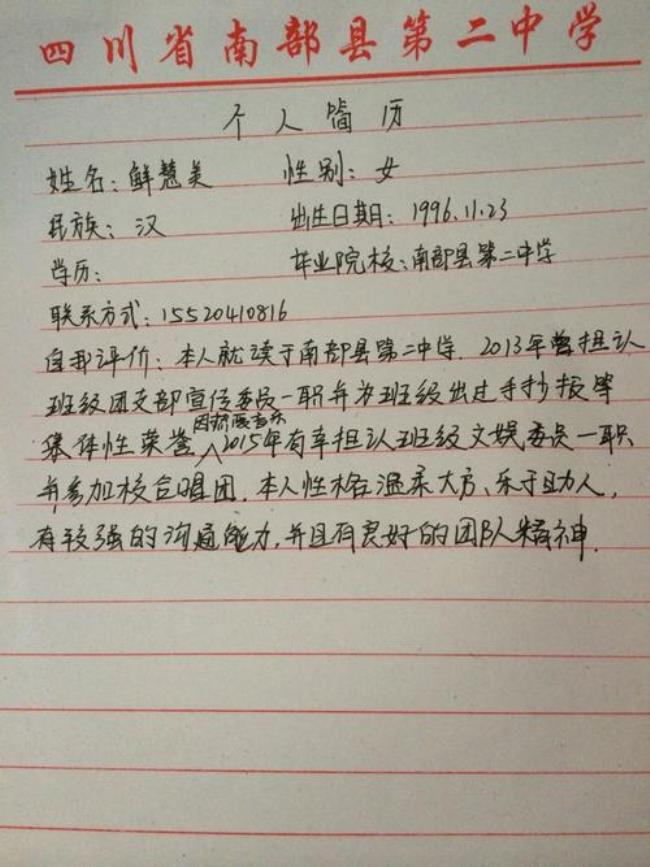 四川省南部县第二中学
个人简历
姓名：鲜慧美 性别：女
民族：汉 出生日期：1996.11.23
学历： 毕业院校：南部县第二中学
联系方式：15520410816
自我评价：本人就读于南部县第二中学。2013年曾担认
班级团支部宣传委员一职并为班级出过手抄报等
集体性荣誉 2015年有幸担认班级文娱委员一职
并参加校合唱团。本人性格温柔大方、乐于助人，
有较强的沟通能力，并且有良好的团队精神。